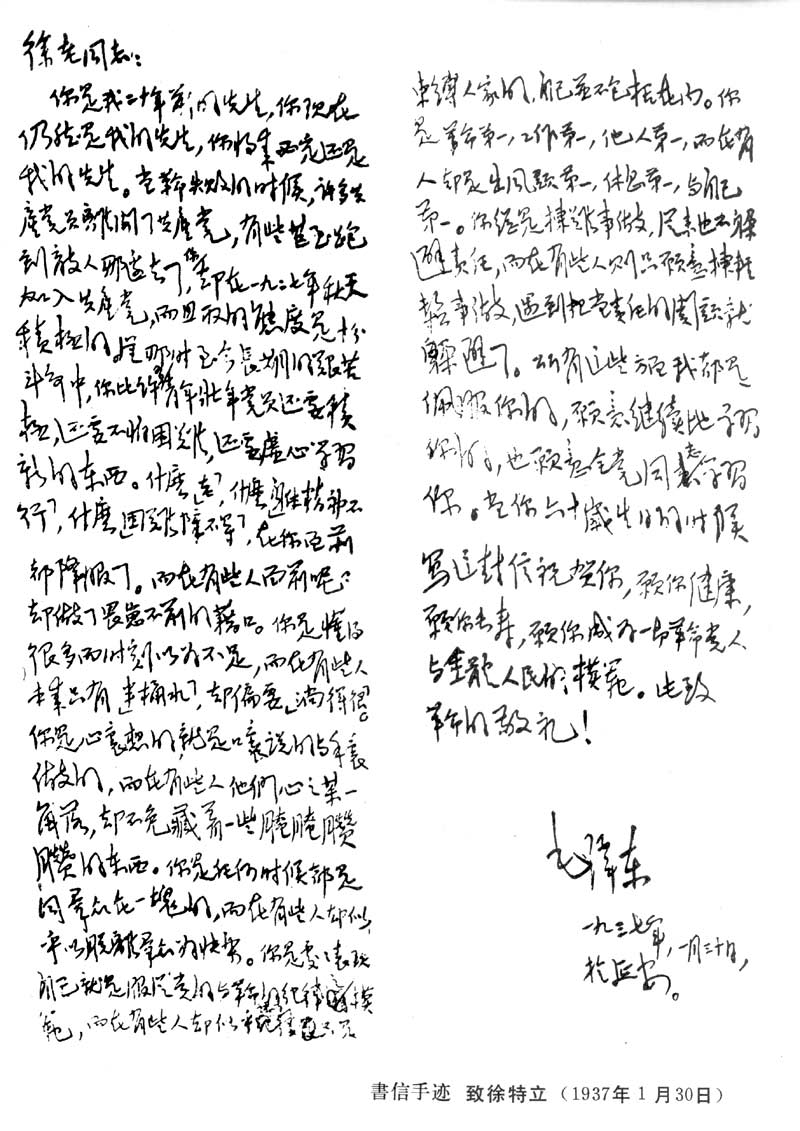 徐老同志：
你是我二十年前的先生，你现在
仍然是我的先生，你将来必定还是
我的先生。当革命失败的时候，许多共
产党员離開了共產党，有些甚至跑
到敌人那边去了，你却在一九二七年秋天
加入共產党，而且取的態度是十分
積極的。从那时至今長期的艱苦
斗争中，你比许多青年壮年党员还要積
極，还要不怕困难，还要虚心学習
新的东西。什麼“老”，什麼“身体精神不
行”，什麼“困难障碍”，在你面前
都降服了。而在有些人面前呢？
却做了畏葸不前的藉口。你是懂得
很多而时刻以为不足，而在有些人
本来只有“半桶水”，却偏要“淌得很”。
你是心裏想的就是口裏说的与手裏
做的，而在有些人他們心之某一
角落，却不免藏着一些腌腌臢
臢的东西。你是任何时候都是
同羣众在一塊的，而在有些人却似
乎以脱離羣众为快樂。你是处处表现
自己就是服从党的与革命的纪律之模
範，而在有些人却似乎認为纪律不过是
束縛人家的，自己並不包括在内。你
是革命第一，工作第一，他人第一，而在有
人却是出风頭第一，休息第一，与自己
第一。你總是揀难事做，从来也不躲
避责任，而在有些人则只願意揀轻
鬆事做，遇到担当责任的関頭就
躲避了。所有这些方面我都是
佩服你的，願意继续地学習
你的，也願意全党同志学習
你。当你六十歲生日的时候
写这封信祝贺你，願你健康，
願你長寿，願你成为一切革命党人
与全體人民的模範。此致
革命的敬礼！
毛泽东
一九三七年，一月三十日，
於延安。
書信手迹 致徐特立（1937年1月30日）